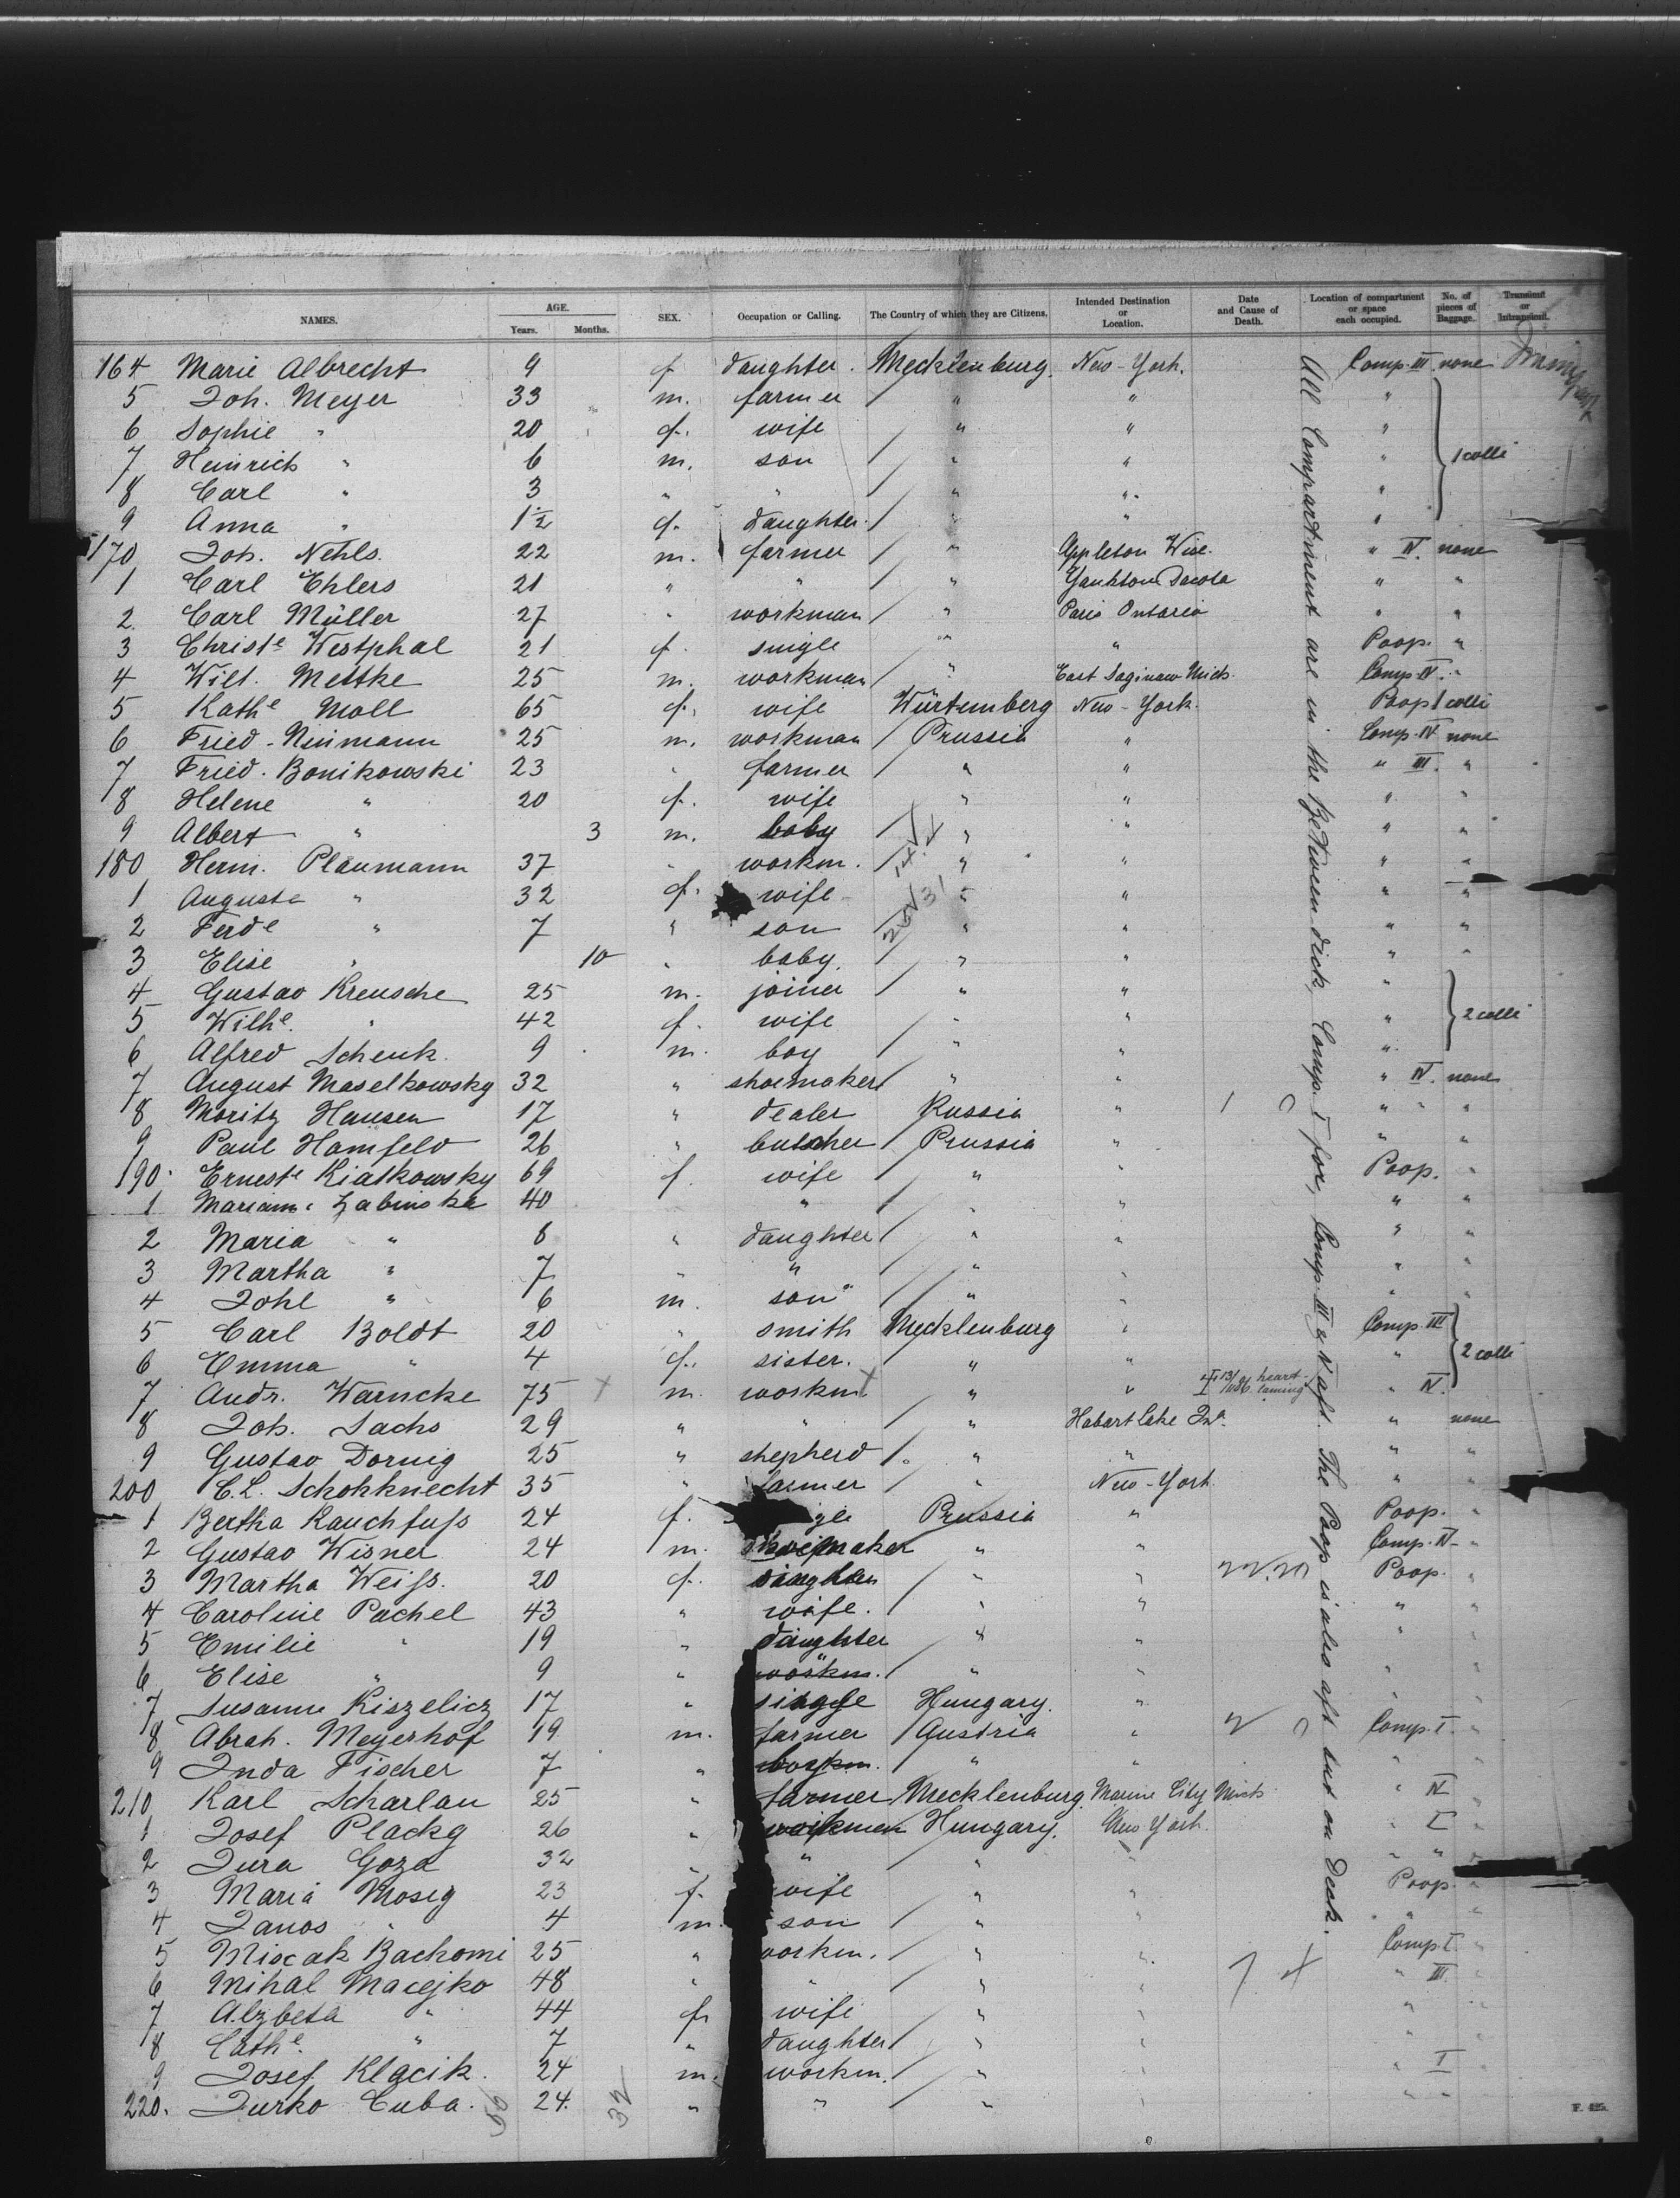 NAMES. AGE. Years. Months. SEX. Occupation or Calling. The Country of which they are Citizens. Intended Destination or Location. Date and Cause of Death. Location of compartment or space each occupied. No. of pieces of Baggage. Transient or Intransient.
164 Marie Albrecht 9 f daughter. Mecklenburg. New-York. Comp. III none
5 Joh. Meyer 33 m. farmer " " "
6 Sophie " 20 f. wife " " "
7 Heinrich " 6 m. son " " " 1 colli
8 Carl " 3 " " " " "
9 Anna " 1½ f. daughter. " " "
170 Joh. Nehls. 22 m. farmer " Appleton Wisc. " IV. none
1 Carl Ehlers 21 " " " Yankton Dacota " "
2 Carl Müller 27 " workman " Paris Ontario " "
3 Christe Westphal 21 f. single " " Poop. "
4 Wilt. Mettke 25 m. workman " East Saginaw Mich. Comp. IV. "
5 Kathe Moll 65 f. wife Würtemberg New-York. Poop 1 colli
6 Fried. Neimann 25 m. workman Prussia " Comp. IV none
7 Fried. Bonikowski 23 " farmer " " " III. "
8 Helene " 20 f. wife " " " "
9 Albert " 3 m. baby " " " "
180 Herm. Plaumann 37 " workm. " " " "
1 Auguste " 32 f. wife " " " "
2 Ferde " 7 " son " " " "
3 Elise " 10 " baby. " " " "
4 Gustav Kreusche 25 m. joiner " " "
5 Wilhe. " 42 f. wife " " " 2 colli
6 Alfred Schenk 9 m. boy " " "
7 August Maselkowsky 32 " shoemaker " " " IV. none
8 Moritz Hansen 17 " dealer Russia " " " "
9 Paul Hamfeld 26 " butcher Prussia " " "
190. Erneste Kiatkowsky 69 f. wife " " Poop. "
1 Mariam. Labinska 40 " " " " "
2 Maria " 8 " daughter " " " "
3 Martha " 7 " " " " " "
4 Johl " 6 m. son " " " "
5 Carl Boldt 20 " smith Mecklenburg " Comp. III
6 Emma " 4 f. sister. " " " 2 colli
7 Andr. Warncke 75 m. workm " " " IV.
8 Joh. Sachs 29 " " " Hobart Lake Ind. " none
9 Gustav Dornig 25 " shepherd " " " "
200 C.L. Schohknecht 35 " farmer " New-York " "
1 Bertha Rauchfuss 24 f. Prussia " Poop. "
2 Gustav Wisner 24 m. shoemaker " " Comp. IV "
3 Martha Weiss. 20 f. " " Poop. "
4 Caroline Pachel 43 " wife. " " " "
5 Emilie " 19 " daughter " " " "
6 Elise " 9 " " " " "
7 Susanne Kiszelicz 17 " single Hungary. " " "
8 Abrah. Meyerhof 19 m. farmer Austria " Comp. I. "
9 Inda Fischer 7 " " " " "
210 Karl Scharlau 25 " farmer Mecklenburg. Marine City Mich " IV "
1 Josef Plackg 26 " workmen Hungary. New York. " I "
2 Jura Goza 32 " " " " " " "
3 Maria Mosig 23 f. wife " " Poop. "
4 Janos " 4 m. son " " " "
5 Miscak Bachomi 25 " workm. " " Comp. I "
6 Mihal Macejko 48 " " " " " III. "
7 Alzbeta " 44 f. wife " " " "
8 Cathe. " 7 " daughter " " " "
9 Josef Klacik. 24 m. workm. " " " I "
220. Jurko Cuba. 24. " " " " " "
All Compartment are in the Between-deck, Comp. I for, Comp. III & IV aft. The Poop is also aft but on Deck.
F. 425.